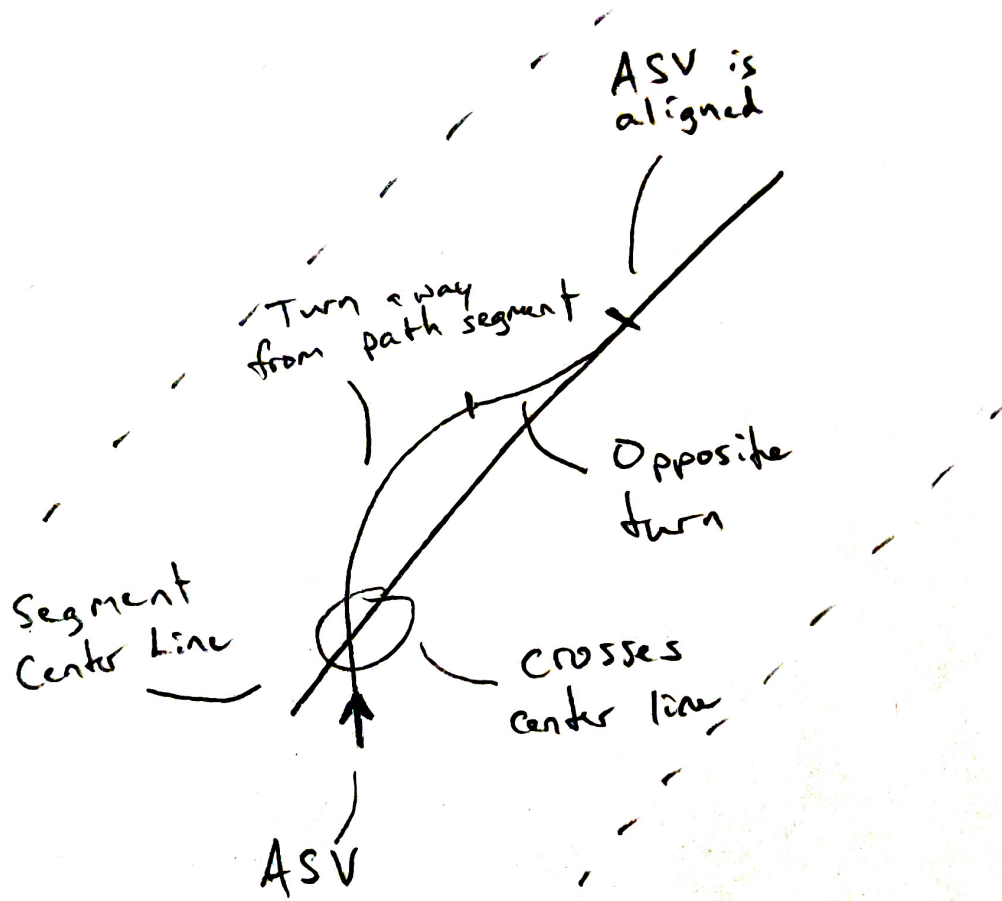 ASV is
aligned
Turn away
from path segment
Opposite
turn
Segment
Center Line
crosses
center line
ASV